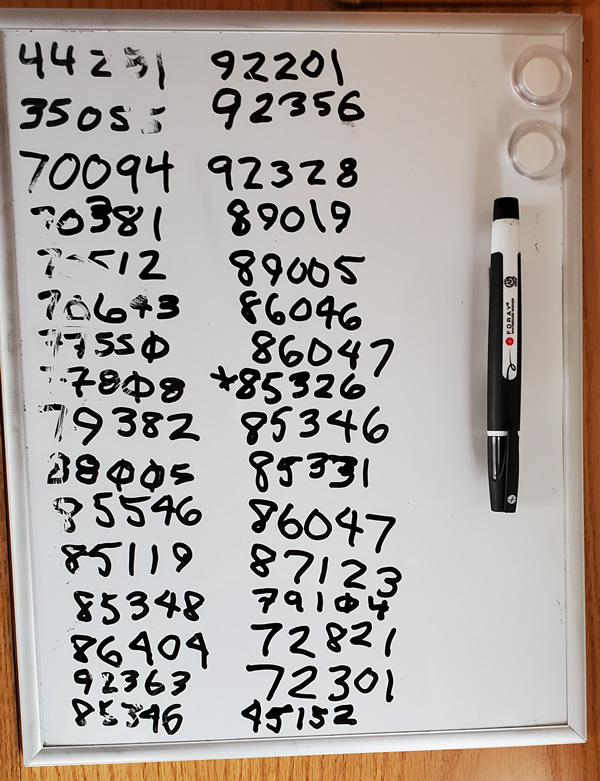 44231 92201
35055 92356
70094 92328
70381 89019
89005
70643 86046
77550 86047
77808 *85326
79382 85346
88005 85331
85546 86047
85119 87123
85348 79104
86404 72821
92363 72301
85346 45152
FORAY